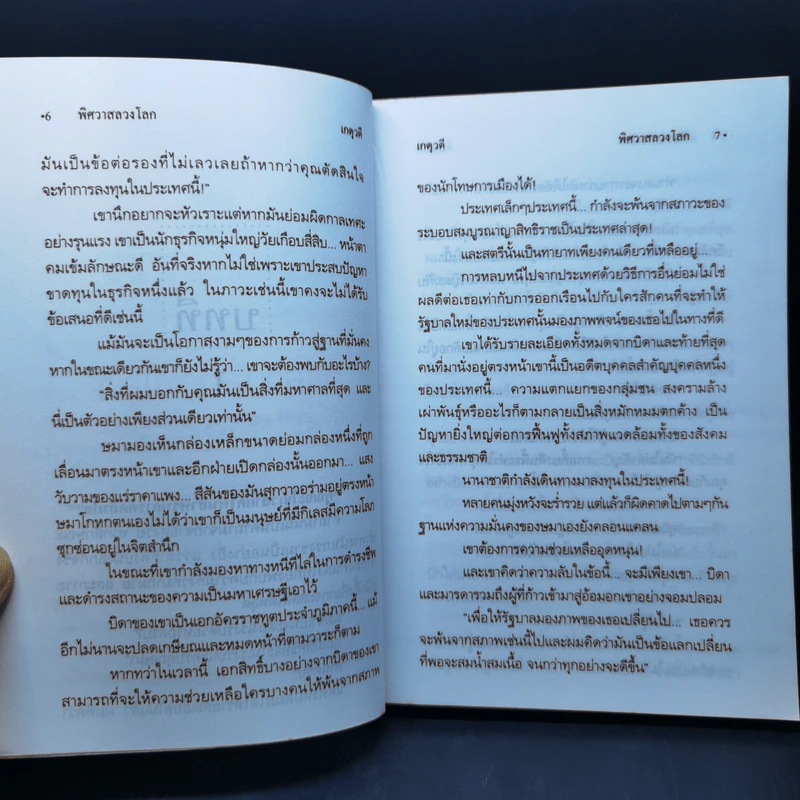 •6 พิศวาสลวงโลก
เกตุวดี
มันเป็นข้อต่อรองที่ไม่เลวเลยถ้าหากว่าคุณตัดสินใจ
จะทำการลงทุนในประเทศนี้!"
เขานึกอยากจะหัวเราะแต่หากมันย่อมผิดกาลเทศะ
อย่างรุนแรง เขาเป็นนักธุรกิจหนุ่มใหญ่วัยเกือบสี่สิบ... หน้าตา
คมเข้มลักษณะดี อันที่จริงหากไม่ใช่เพราะเขาประสบปัญหา
ขาดทุนในธุรกิจหนึ่งแล้ว ในภาวะเช่นนี้เขาคงจะไม่ได้รับ
ข้อเสนอที่ดีเช่นนี้
แม้มันจะเป็นโอกาสงามๆของการก้าวสู่ฐานที่มั่นคง
หากในขณะเดียวกันเขาก็ยังไม่รู้ว่า... เขาจะต้องพบกับอะไรบ้าง?
"สิ่งที่ผมบอกกับคุณมันเป็นสิ่งที่มหาศาลที่สุด และ
นี่เป็นตัวอย่างเพียงส่วนเดียวเท่านั้น"
ษมามองเห็นกล่องเหล็กขนาดย่อมกล่องหนึ่งที่ถูก
เลื่อนมาตรงหน้าเขาและอีกฝ่ายเปิดกล่องนั้นออกมา... แสง
วับวามของแร่ราคาแพง... สีสันของมันสุกวาวอร่ามอยู่ตรงหน้า
ษมาโกหกตนเองไม่ได้ว่าเขาก็เป็นมนุษย์ที่มีกิเลสมีความโลภ
ซุกซ่อนอยู่ในจิตสำนึก
ในขณะที่เขากำลังมองหาทางหนีทีไล่ในการดำรงชีพ
และดำรงสถานะของความเป็นมหาเศรษฐีเอาไว้
บิดาของเขาเป็นเอกอัครราชทูตประจำภูมิภาคนี้... แม้
อีกไม่นานจะปลดเกษียณและหมดหน้าที่ตามวาระก็ตาม
หากทว่าในเวลานี้ เอกสิทธิ์บางอย่างจากบิดาของเขา
สามารถที่จะให้ความช่วยเหลือใครบางคนให้พ้นจากสภาพ
เกตุวดี พิศวาสลวงโลก 7•
ของนักโทษการเมืองได้!
ประเทศเล็กๆประเทศนี้... กำลังจะพ้นจากสภาวะของ
ระบอบสมบูรณาญาสิทธิราชเป็นประเทศล่าสุด!
และสตรีนั้นเป็นทายาทเพียงคนเดียวที่เหลืออยู่...
การหลบหนีไปจากประเทศด้วยวิธีการอื่นย่อมไม่ใช่
ผลดีต่อเธอเท่ากับการออกเรือนไปกับใครสักคนที่จะทำให้
รัฐบาลใหม่ของประเทศนั้นมองภาพพจน์ของเธอไปในทางที่ดี
เขาได้รับรายละเอียดทั้งหมดจากบิดาและท้ายที่สุด
คนที่มานั่งอยู่ตรงหน้าเขานี้เป็นอดีตบุคคลสำคัญบุคคลหนึ่ง
ของประเทศนี้... ความแตกแยกของกลุ่มชน สงครามล้าง
เผ่าพันธุ์หรืออะไรก็ตามกลายเป็นสิ่งหมักหมมตกค้าง เป็น
ปัญหายิ่งใหญ่ต่อการฟื้นฟูทั้งสภาพแวดล้อมทั้งของสังคม
และธรรมชาติ
นานาชาติกำลังเดินทางมาลงทุนในประเทศนี้!
หลายคนมุ่งหวังจะร่ำรวย แต่แล้วก็ผิดคาดไปตามๆกัน
ฐานแห่งความมั่นคงของษมาเองยังคลอนแคลน
เขาต้องการความช่วยเหลืออุดหนุน!
และเขาคิดว่าความลับในข้อนี้... จะมีเพียงเขา... บิดา
และมารดารวมถึงผู้ที่ก้าวเข้ามาสู่อ้อมอกเขาอย่างจอมปลอม
"เพื่อให้รัฐบาลมองภาพของเธอเปลี่ยนไป... เธอควร
จะพ้นจากสภาพเช่นนี้ไปและผมคิดว่ามันเป็นข้อแลกเปลี่ยน
ที่พอจะสมน้ำสมเนื้อ จนกว่าทุกอย่างจะดีขึ้น"